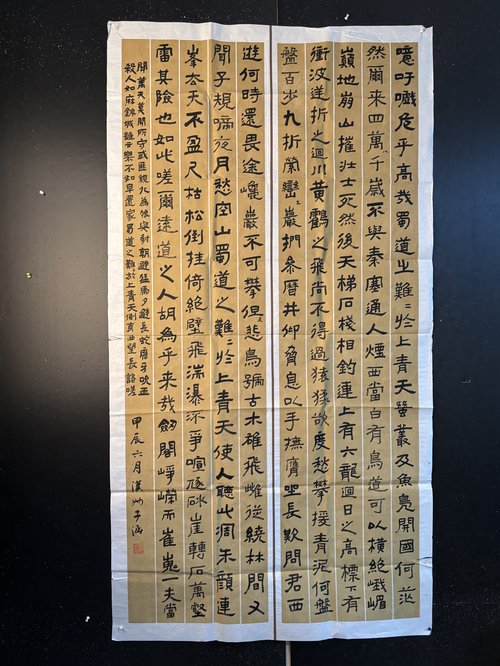 噫吁嚱危乎高哉蜀道之難〻於上青天蠶叢及魚鳧開國何茫
然爾來四萬八千歲不與秦塞通人煙西當白有鳥道可以橫絕峨嵋
巔地崩山摧壯士死然後天梯石棧相鉤連上有六龍迴日之高標下有
衝波逆折之迴川黃鶴之飛尚不得過猿猱欲度愁攀援青泥何盤
盤百步九折縈巒巖捫參歷井仰脅息以手撫膺坐長歎問君西
遊何時還畏途巉巖不可攀但見悲鳥號古木雄飛雌從繞林間又
聞子規啼夜月愁空山蜀道之難〻於上青天使人聽此凋朱顏連
峯去天不盈尺枯松倒挂倚絕壁飛湍瀑流爭喧豗砯崖轉石萬壑
雷其險也如此嗟爾遠道之人胡為乎來哉劍閣崢嶸而崔嵬一夫當
關萬夫莫開所守或匪親化為狼與豺朝避猛虎夕避長蛇磨牙吮血
殺人如麻錦城雖云樂不如早還家蜀道之難於上青天側身西望長咨嗟
甲辰六月漢州子涵